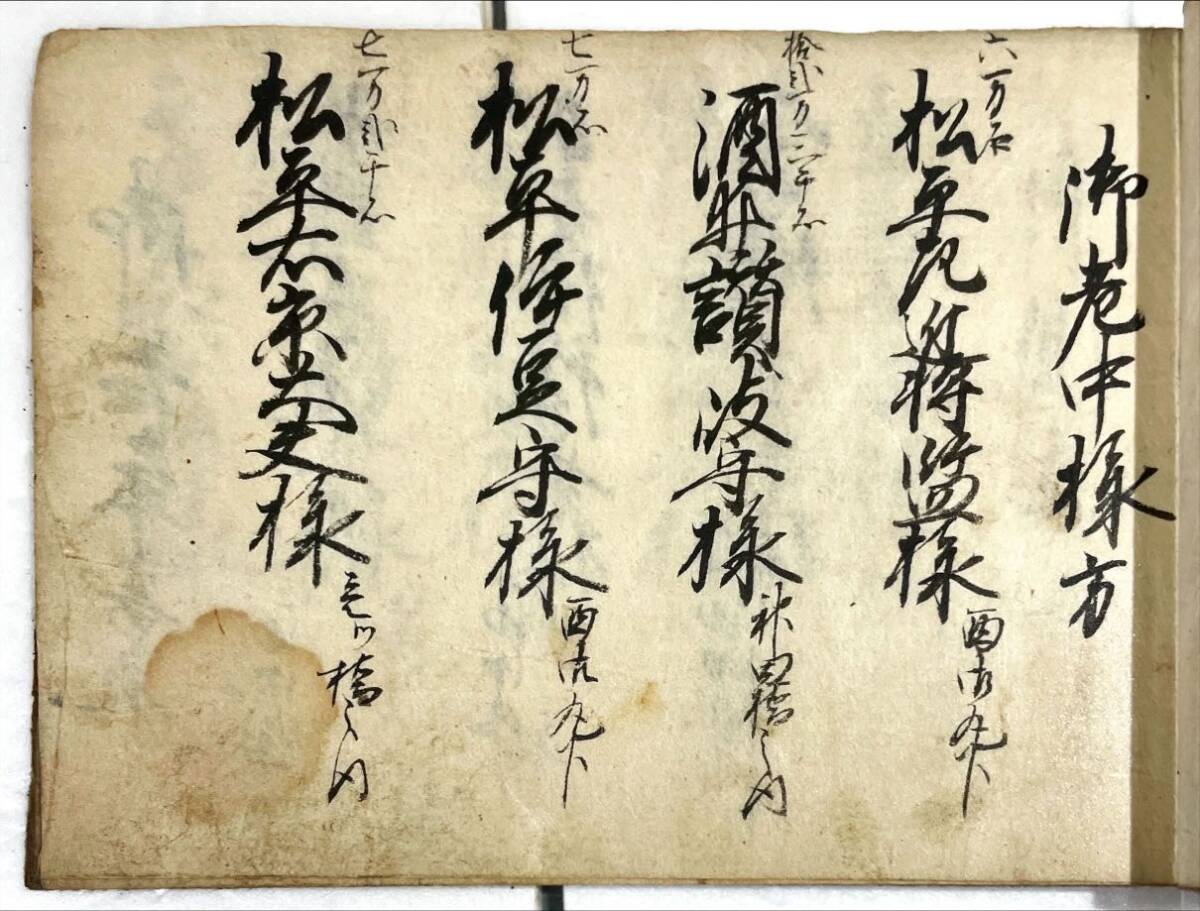 御老中様方
六万石
松平左近将監様
西御丸下
拾弐万三千石
酒井讃岐守様
神田橋之内
七万石
松平伊豆守様
西御丸下
七万弐千石
松平右京大夫様
橋之内